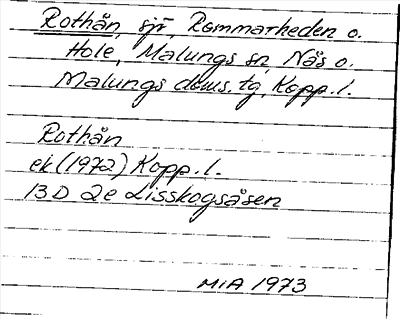 Rothån, sjö, Rommarheden o.
Hole, Malungs sn, Näs o.
Malungs doms. tg, Kopp. l.
Rothån
ek (1972) Kopp. l.
13D 2e Lisskogsåsen
MIA 1973